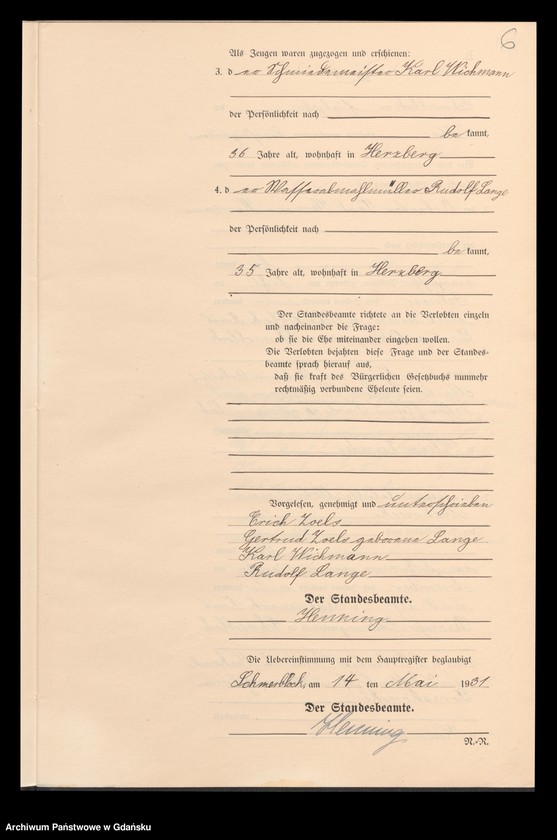 6
Als Zeugen waren zugezogen und erschienen:
3. der Schmiedemeister Karl Wichmann
der Persönlichkeit nach
bekannt,
36 Jahre alt, wohnhaft in Herzberg
4. der Wassermahlmüller Rudolf Lange
der Persönlichkeit nach
bekannt,
35 Jahre alt, wohnhaft in Herzberg
Der Standesbeamte richtete an die Verlobten einzeln
und nacheinander die Frage:
ob sie die Ehe miteinander eingehen wollen.
Die Verlobten bejahten diese Frage und der Standes-
beamte sprach hierauf aus,
daß sie kraft des Bürgerlichen Gesetzbuchs nunmehr
rechtmäßig verbundene Eheleute seien.
Vorgelesen, genehmigt und unterschrieben
Erich Zoels
Gertrud Zoels geborene Lange
Karl Wichmann
Rudolf Lange
Der Standesbeamte.
Henning
Die Uebereinstimmung mit dem Hauptregister beglaubigt
Schmerblock, am 14 ten Mai 1931
Der Standesbeamte.
Henning
N.-R.
Archiwum Państwowe w Gdańsku